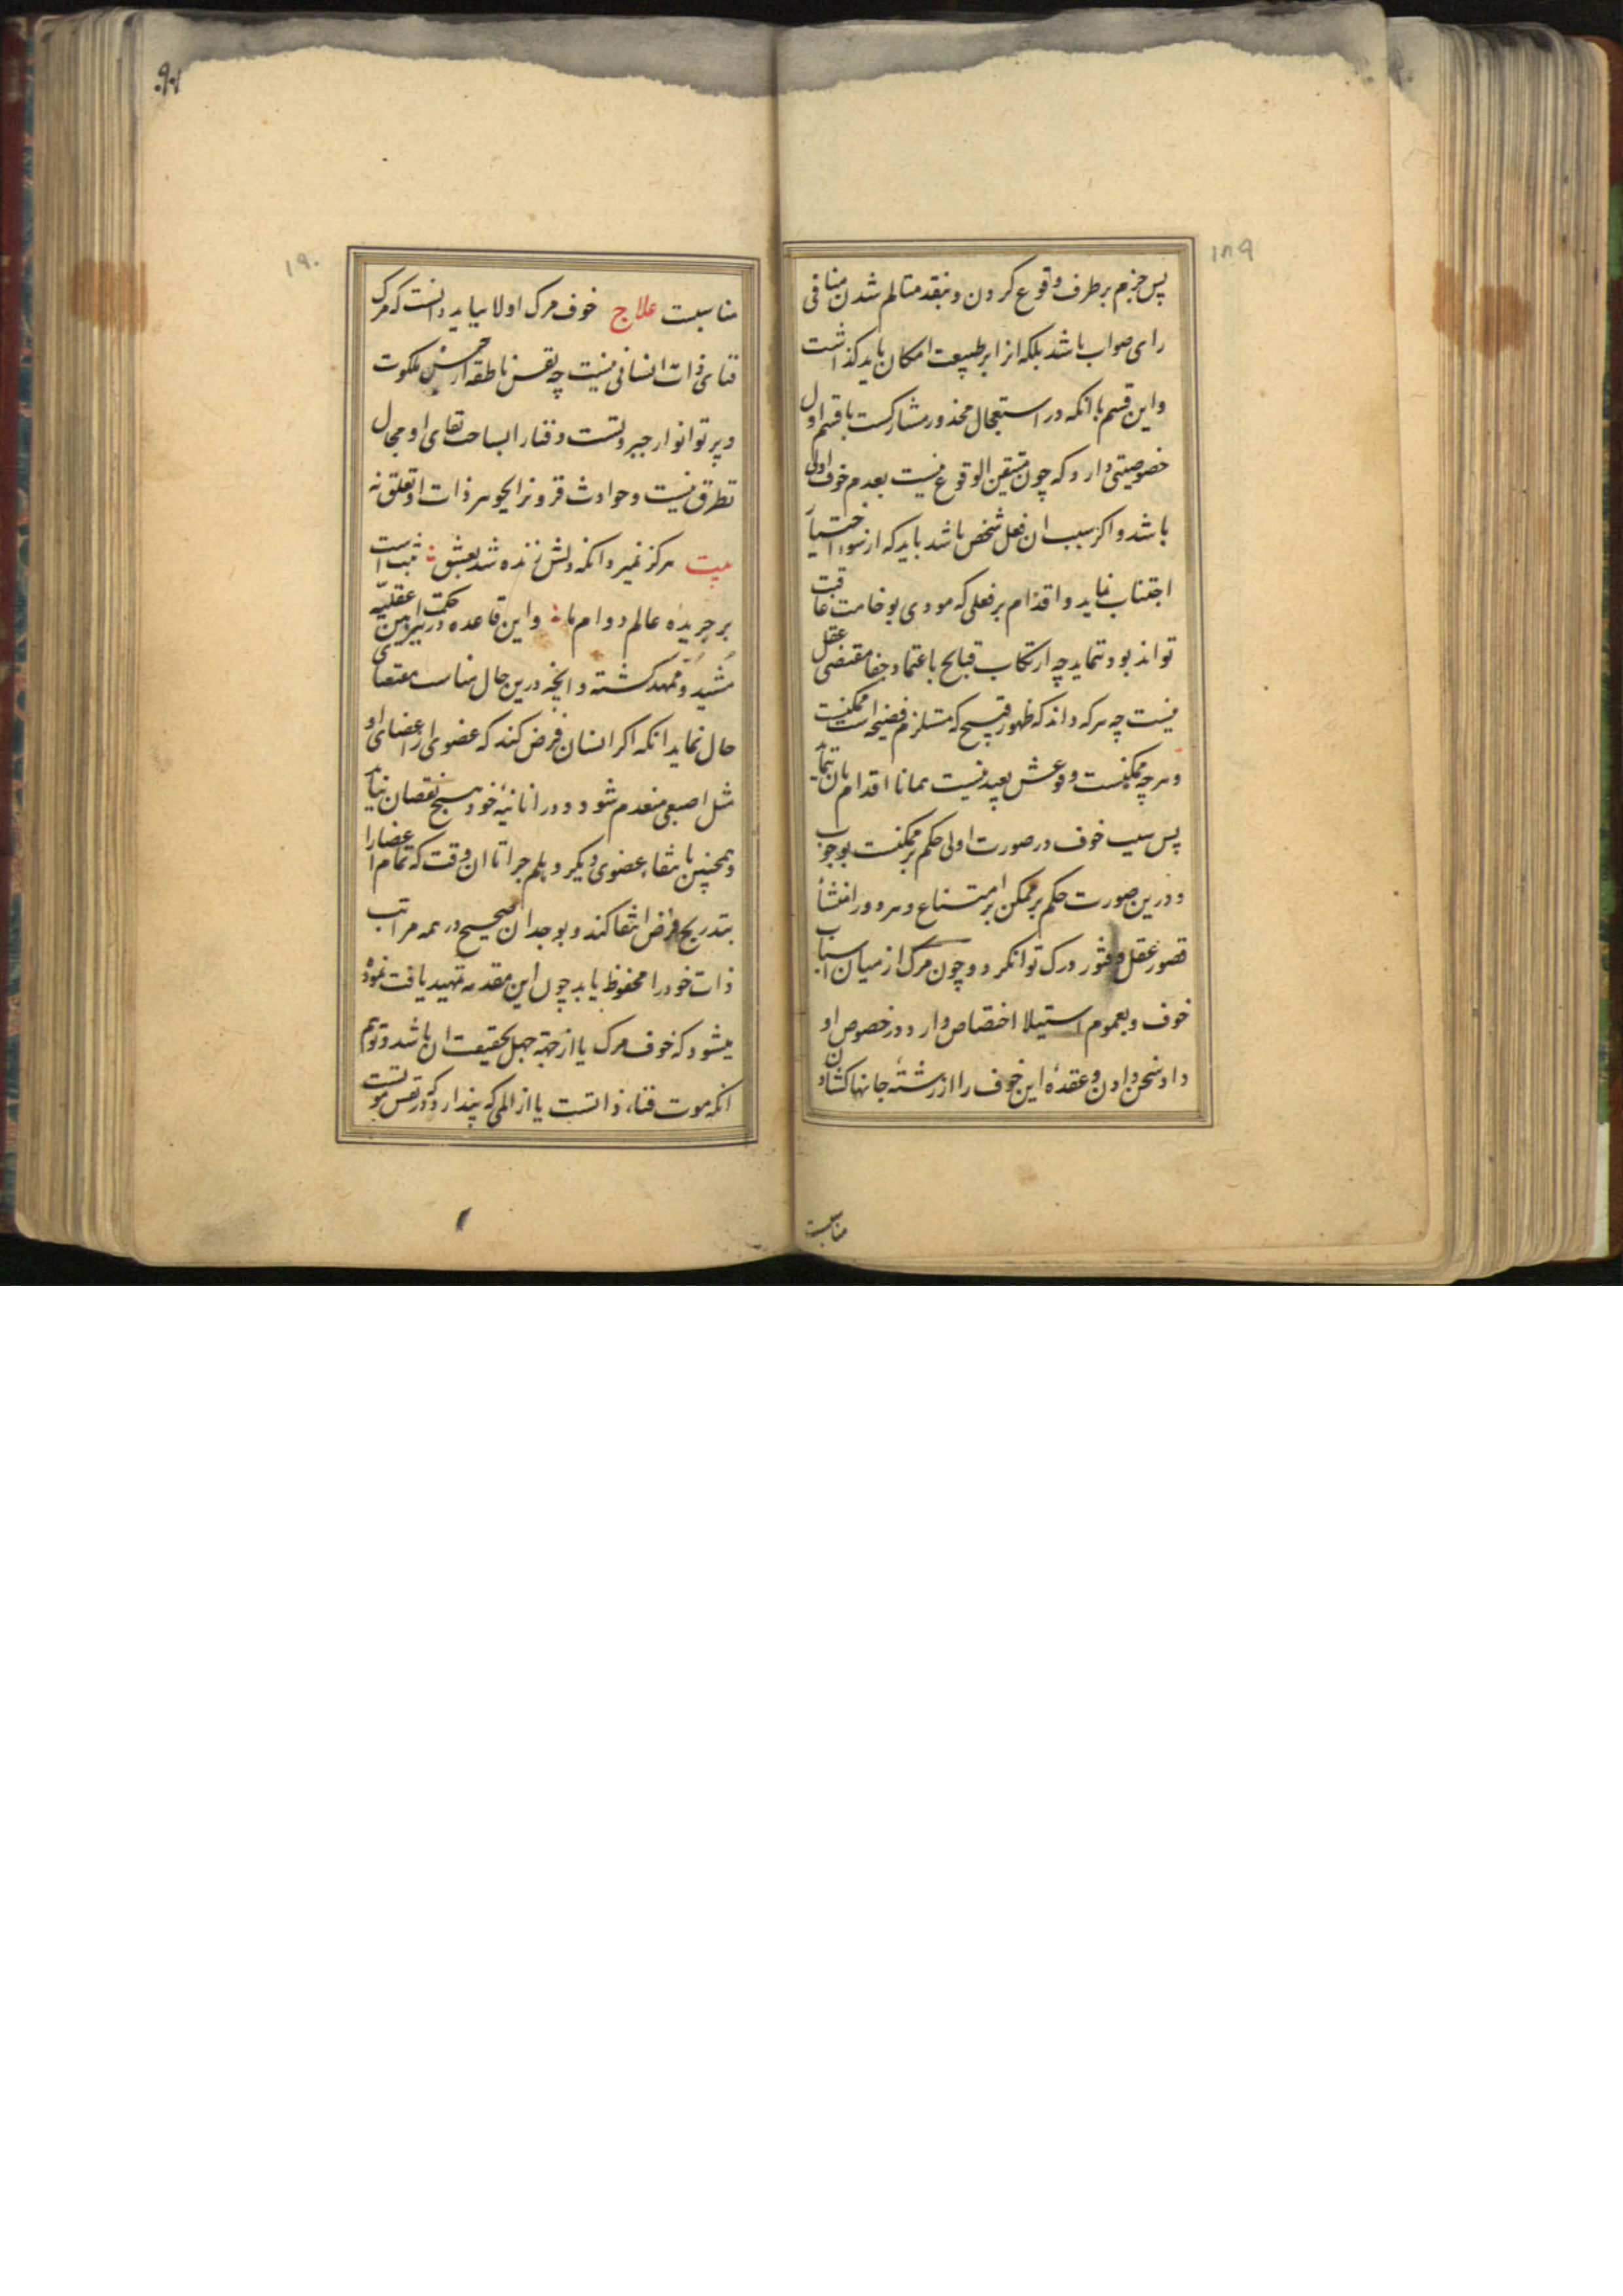 ۱۸۹
پس جزم بر طرف وقوع کردن و بنقد متالم شدن منافی
رای صواب باشد بلکه انرا بر طبیعت امکان باید کذاشت
واین قسم با انکه در استعجال محذور مشارکست با قسم اول
خصوصیتی دارد که چون متیقن الوقوع نیست بعدم خوف اولی
باشد و اکر سبب ان فعل شخص باشد باید که از سوء اختیار
اجتناب نماید و اقدام بر فعلی که مودی بوخامت عاقبت
تواند بود ننماید چه ارتکاب قبایح باعتماد خفا مقتضی عقل
نیست چه هرکه داند که ظهور قبیح که مستلزم فضیحت است ممکنست
وهرچه ممکنست وقوعش بعید نیست همانا اقدام بان ننماید
پس سبب خوف در صورت اولی حکم بر ممکنست بوجوب
ودرین صورت حکم بر ممکن بامتناع و هر دو را منشأ
قصور عقل و فتور درک تواند کرد و چون مرک از میان اسباب
خوف وبعموم استیلا اختصاص دارد در خصوص او
داد سخن دادن و عقدهٔ این خوف را از رشتهٔ جانها کشادن
مناسبت
۱۹۰
مناسبت علاج خوف مرک اولا بباید دانست که مرک
فنای ذات انسانی نیست چه نفس ناطقه از ملکوت
وپرتو انوار جبروتست وفنا را بساحت بقای او مجال
تطرق نیست وحوادث قرون را بجوهر ذات او تعلق نه
بیت هرکز نمیرد انکه دلش زنده شد بعشق ثبت است
بر جریدهٔ عالم دوام ما واین قاعده در حکمت عقلیه
مشید وممهد کشته وانچه درین حال مناسب مقتضای
حال نماید انکه اکر انسان فرض کند که عضوی از اعضای او
مثل اصبعی منعدم شود در انانیهٔ خود هیچ نقصان نیابد
وهمچنین بانتفاء عضوی دیکر وهلم جرا تا ان وقت که تمام اعضا را
بتدریج فرض انتفا کند وبوجدان صحیح در همه مراتب
ذات خود را محفوظ یابد چون این مقدمه تمهید یافت نموده
میشود که خوف مرک یا از جهة جهل بحقیقت ان باشد وتوهم
انکه موت فناء ذاتست یا از المی که پندارد که در نفس موتست